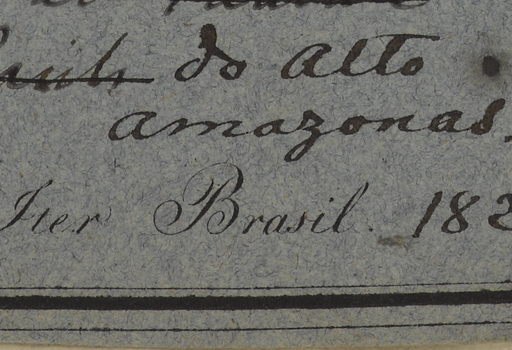 do Alto
Amazonas.
Iter Brasil. 182